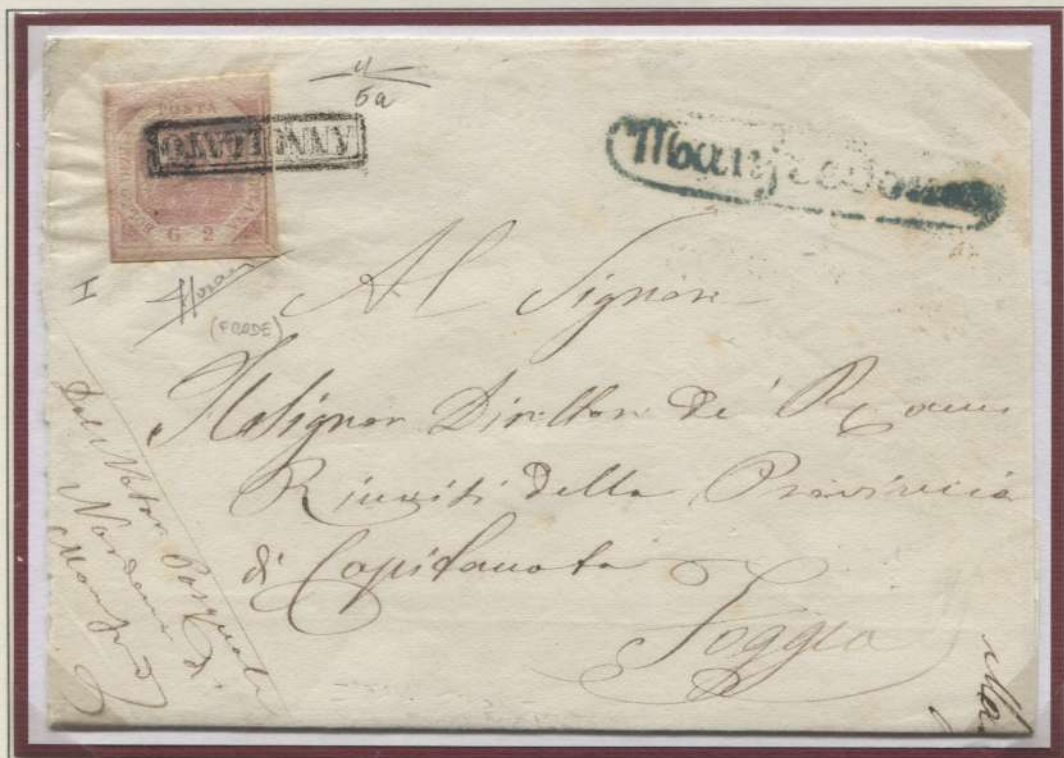 4
5a
POSTA
G 2
ANNULLATO
Manfredonia
I
(FRODE)
Al Signore
Il Signor Direttore de' R. rami
Riuniti della Provincia
di Capitanata
Foggia
Dal Notar Pasquale